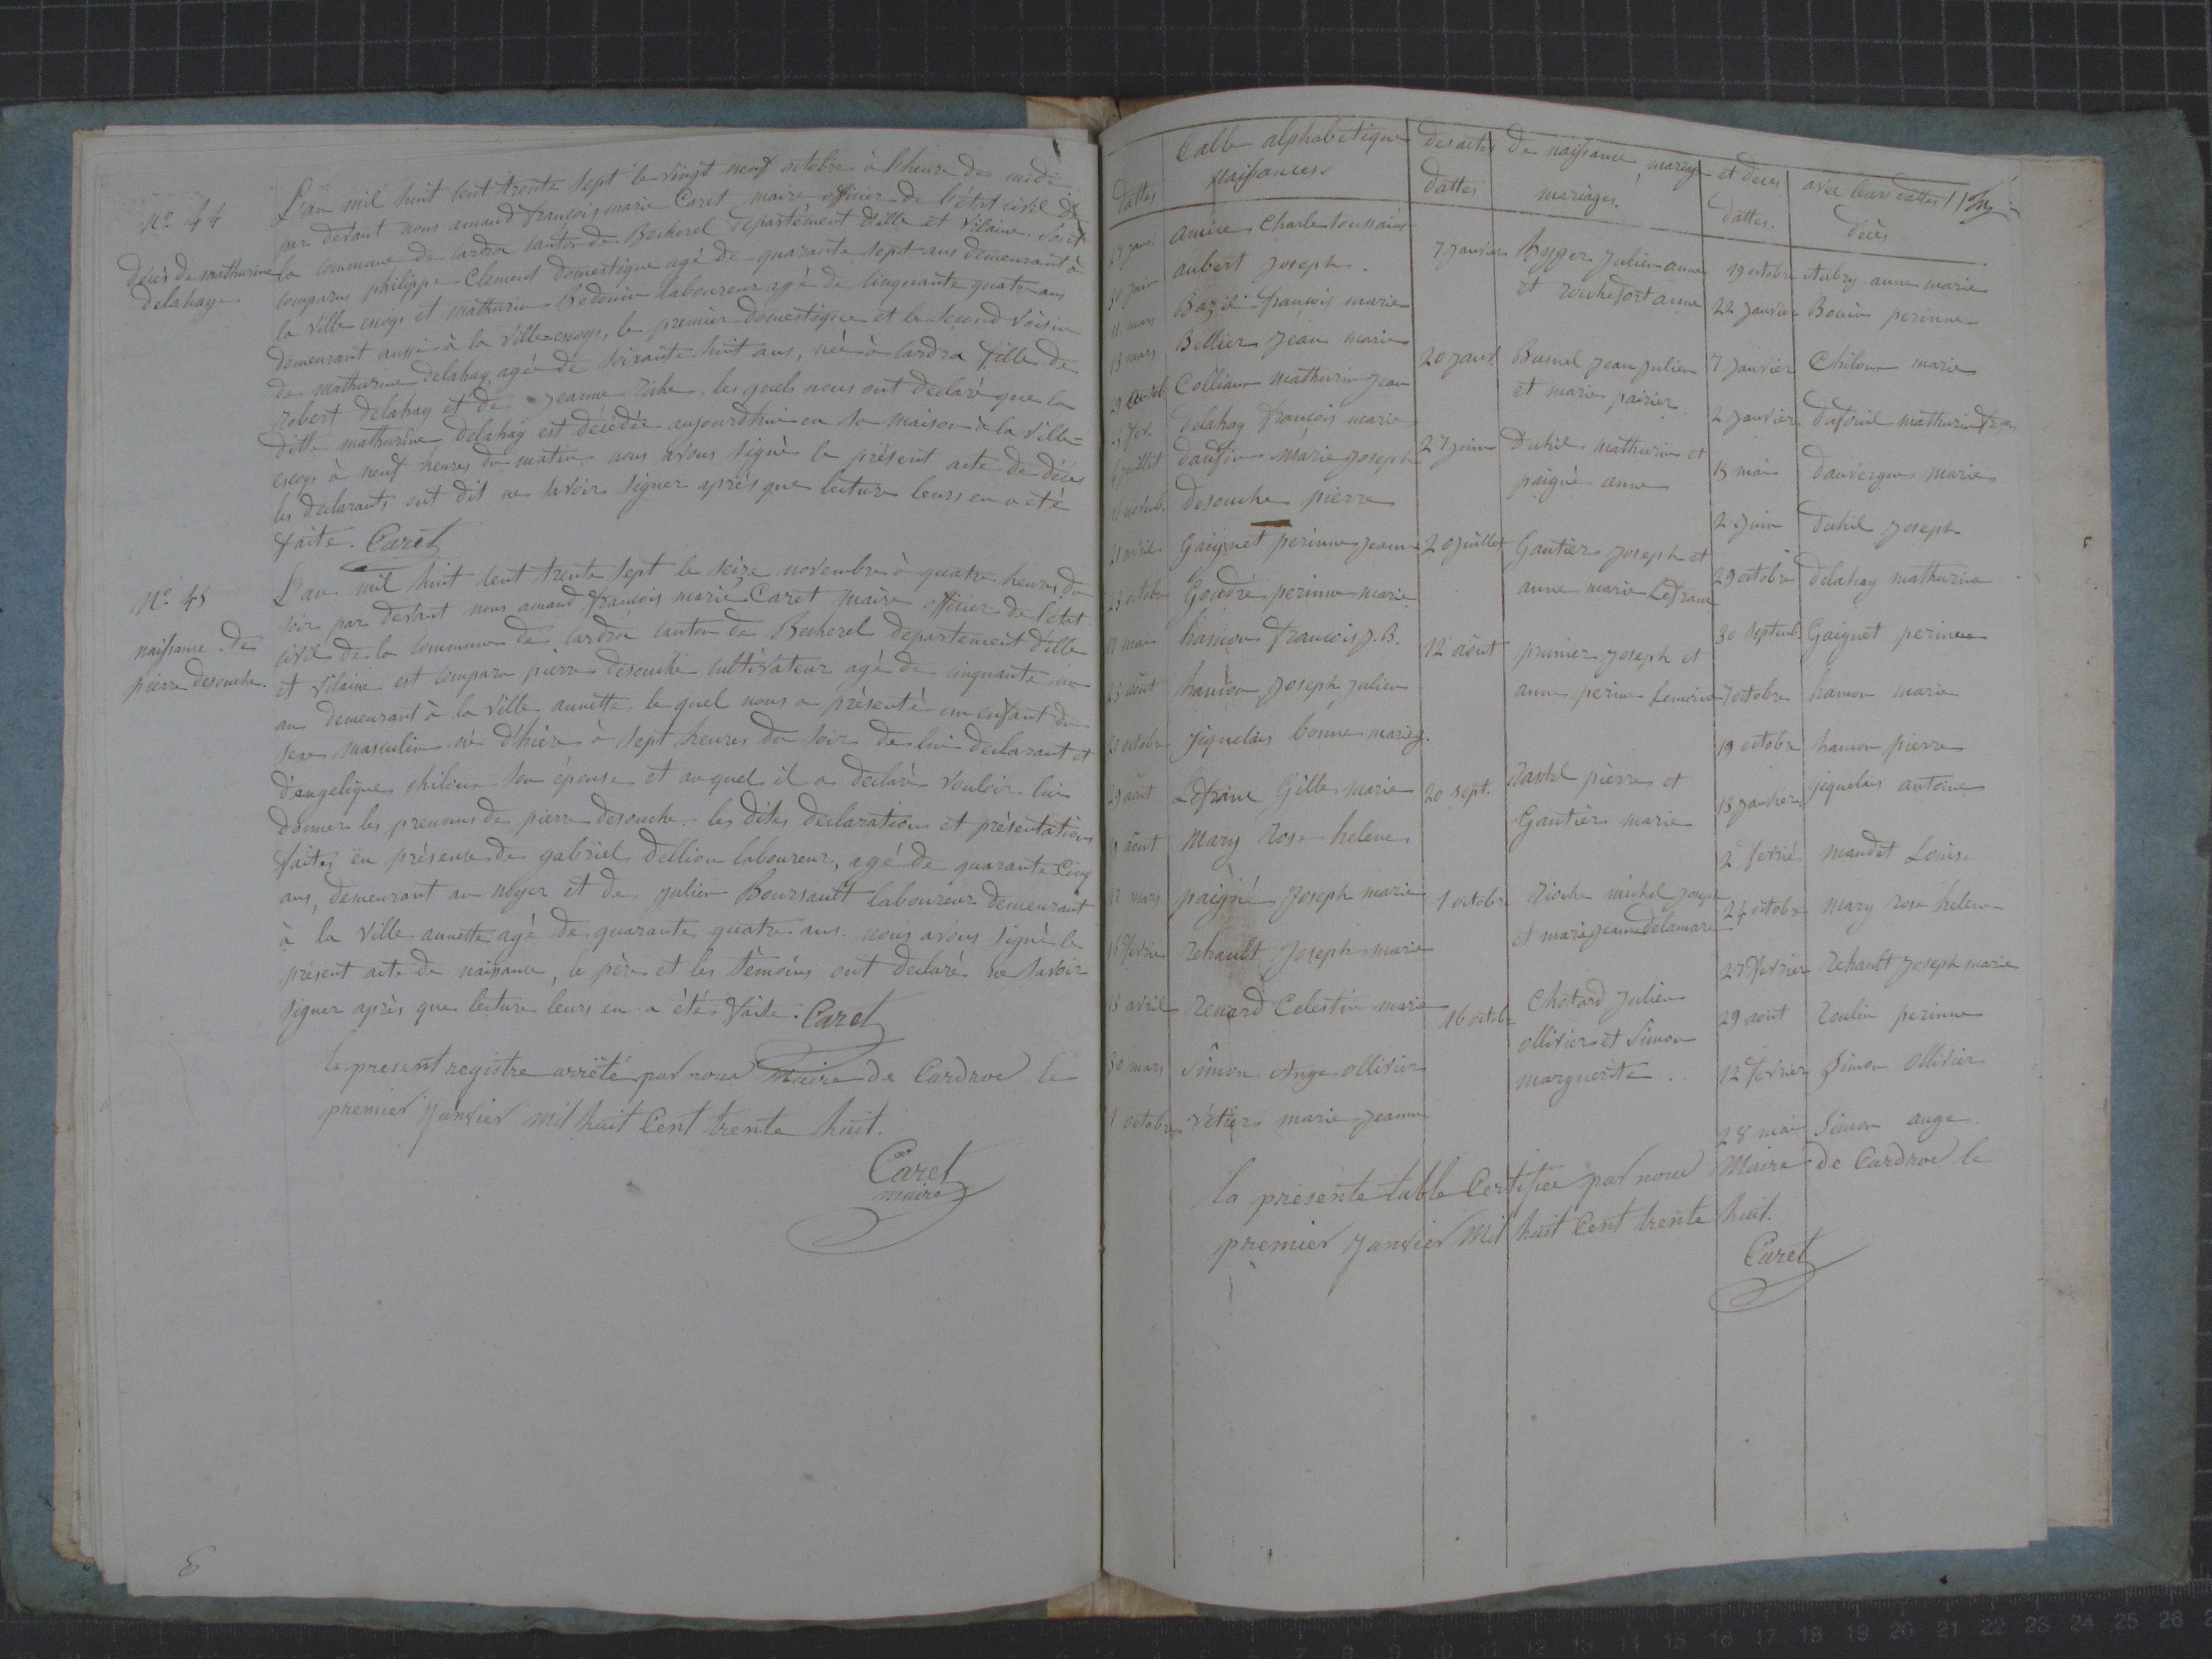 N° 44
Décès de mathurine
delahaye
L'an mil huit cent trente sept le vingt neuf octobre à l'heure de midi
par devant nous amand françois marie Caret maire officier de l'état civil de
la commune de cardroc canton de Becherel departement d'ille et vilaine. Sont
comparus philippe Clément domestique agé de quarante sept ans demeurant à
la ville et mathurin Bedouin laboureur agé de cinquante quatre ans
demeurant aussi à la ville, le premier domestique et le second voisin
de mathurine delahay agé de soixante huit ans, née à cardroc fille de
robert delahay et de jeanne, les quels nous ont declaré que la
ditte mathurine delahay est décédée aujourdhui en sa maison à la ville-
à neuf heures du matin. nous avons signé le présent acte de décès
les declarants ont dit ne savoir signer après que lecture leurs en a été
faite. Caret
N° 45
naissance de
pierre desouche.
L'an mil huit cent trente sept le seize novembre à quatre heures du
soir par devant nous amand françois marie Caret maire officier de l'état
civil de la commune de cardroc canton de Becherel departement d'ille
et vilaine est comparu pierre desouche cultivateur agé de cinquante un
an demeurant à la ville aunette le quel nous a présenté un enfant du
sexe masculin né d'hière à sept heures du soir de lui declarant et
d'angelique chilou son épouse et auquel il a declaré vouloir lui
donner les prenoms de pierre desouche. les dites declarations et présentations
faites en présence de gabriel dellion laboureur, agé de quarante cinq
ans, demeurant au noyer et de julien Boursault laboureur demeurant
à la ville aunette agé de quarante quatre ans. nous avons signé le
présent acte de naissance, le père et les témoins ont declaré ne savoir
signer après que lecture leurs en a étés faite. Caret
le present registre arrêté par nous Maire de Cardroc le
premier janvier mil huit Cent trente huit.
Caret
maire
Table alphabétique des actes de naissance, mariage et deces avec leur dattes
dattes naissances dattes mariages. dattes. décès
27 janv. amice Charle toussaint
30 juin aubert joseph.
11 mars Bazil françois marie
13 mars Bellier jean marie
Colliaux mathurin jean
fev. delahay françois marie
juillet daufin marie joseph
16 novemb. desouche pierre
21 avril Gaignet perinne jeanne
23 octobre Goudré perinne marie
17 mai hamon françois J. B.
23 août hamon joseph julien
21 octobre jiquelais bonne marie j.
29 août Lefranc Gille marie
août Mary rose helene
17 mars paigné joseph marie
16 fevrier rehault joseph marie
13 avril renard Celestin marie
30 mars Simon ange ollivier
1 octobre vétier marie jeanne
7 janvier hyger julien anne
et rochefort anne
20 janv. Busnel jean julien
et marie pairier
27 juin Duhil mathurin et
paigné anne
20 juillet Gautier joseph et
anne marie Lefranc
12 août prunier joseph et
anne perine Lemoine
20 sept. rastel pierre et
Gautier marie
1 octobre rioche michel joseph
et marie jeanne delamare
16 octobr Chotard julien
ollivier et Simon
marguerite.
19 octobre Aubry anne marie
22 janvier Bouin perinne
7 janvier Chilou marie
2 janvier dufeuil mathurin
13 mai dauvergne marie
2 juin duhil joseph
29 octobre delahay mathurine
30 septemb. Gaignet perinne
7 octobre hamon marie
19 octobre hamon pierre
13 janvier jiquelais antoine
2 fevrié mandet Louise
24 octobre mary rose helene
27 fevrier rehault joseph marie
29 août roulin perinne
12 fevrier Simon ollivier
28 mai Simon ange.
la présente table Certifiée par nous Maire de Cardroc le
premier janvier mil huit Cent trente huit.
Caret